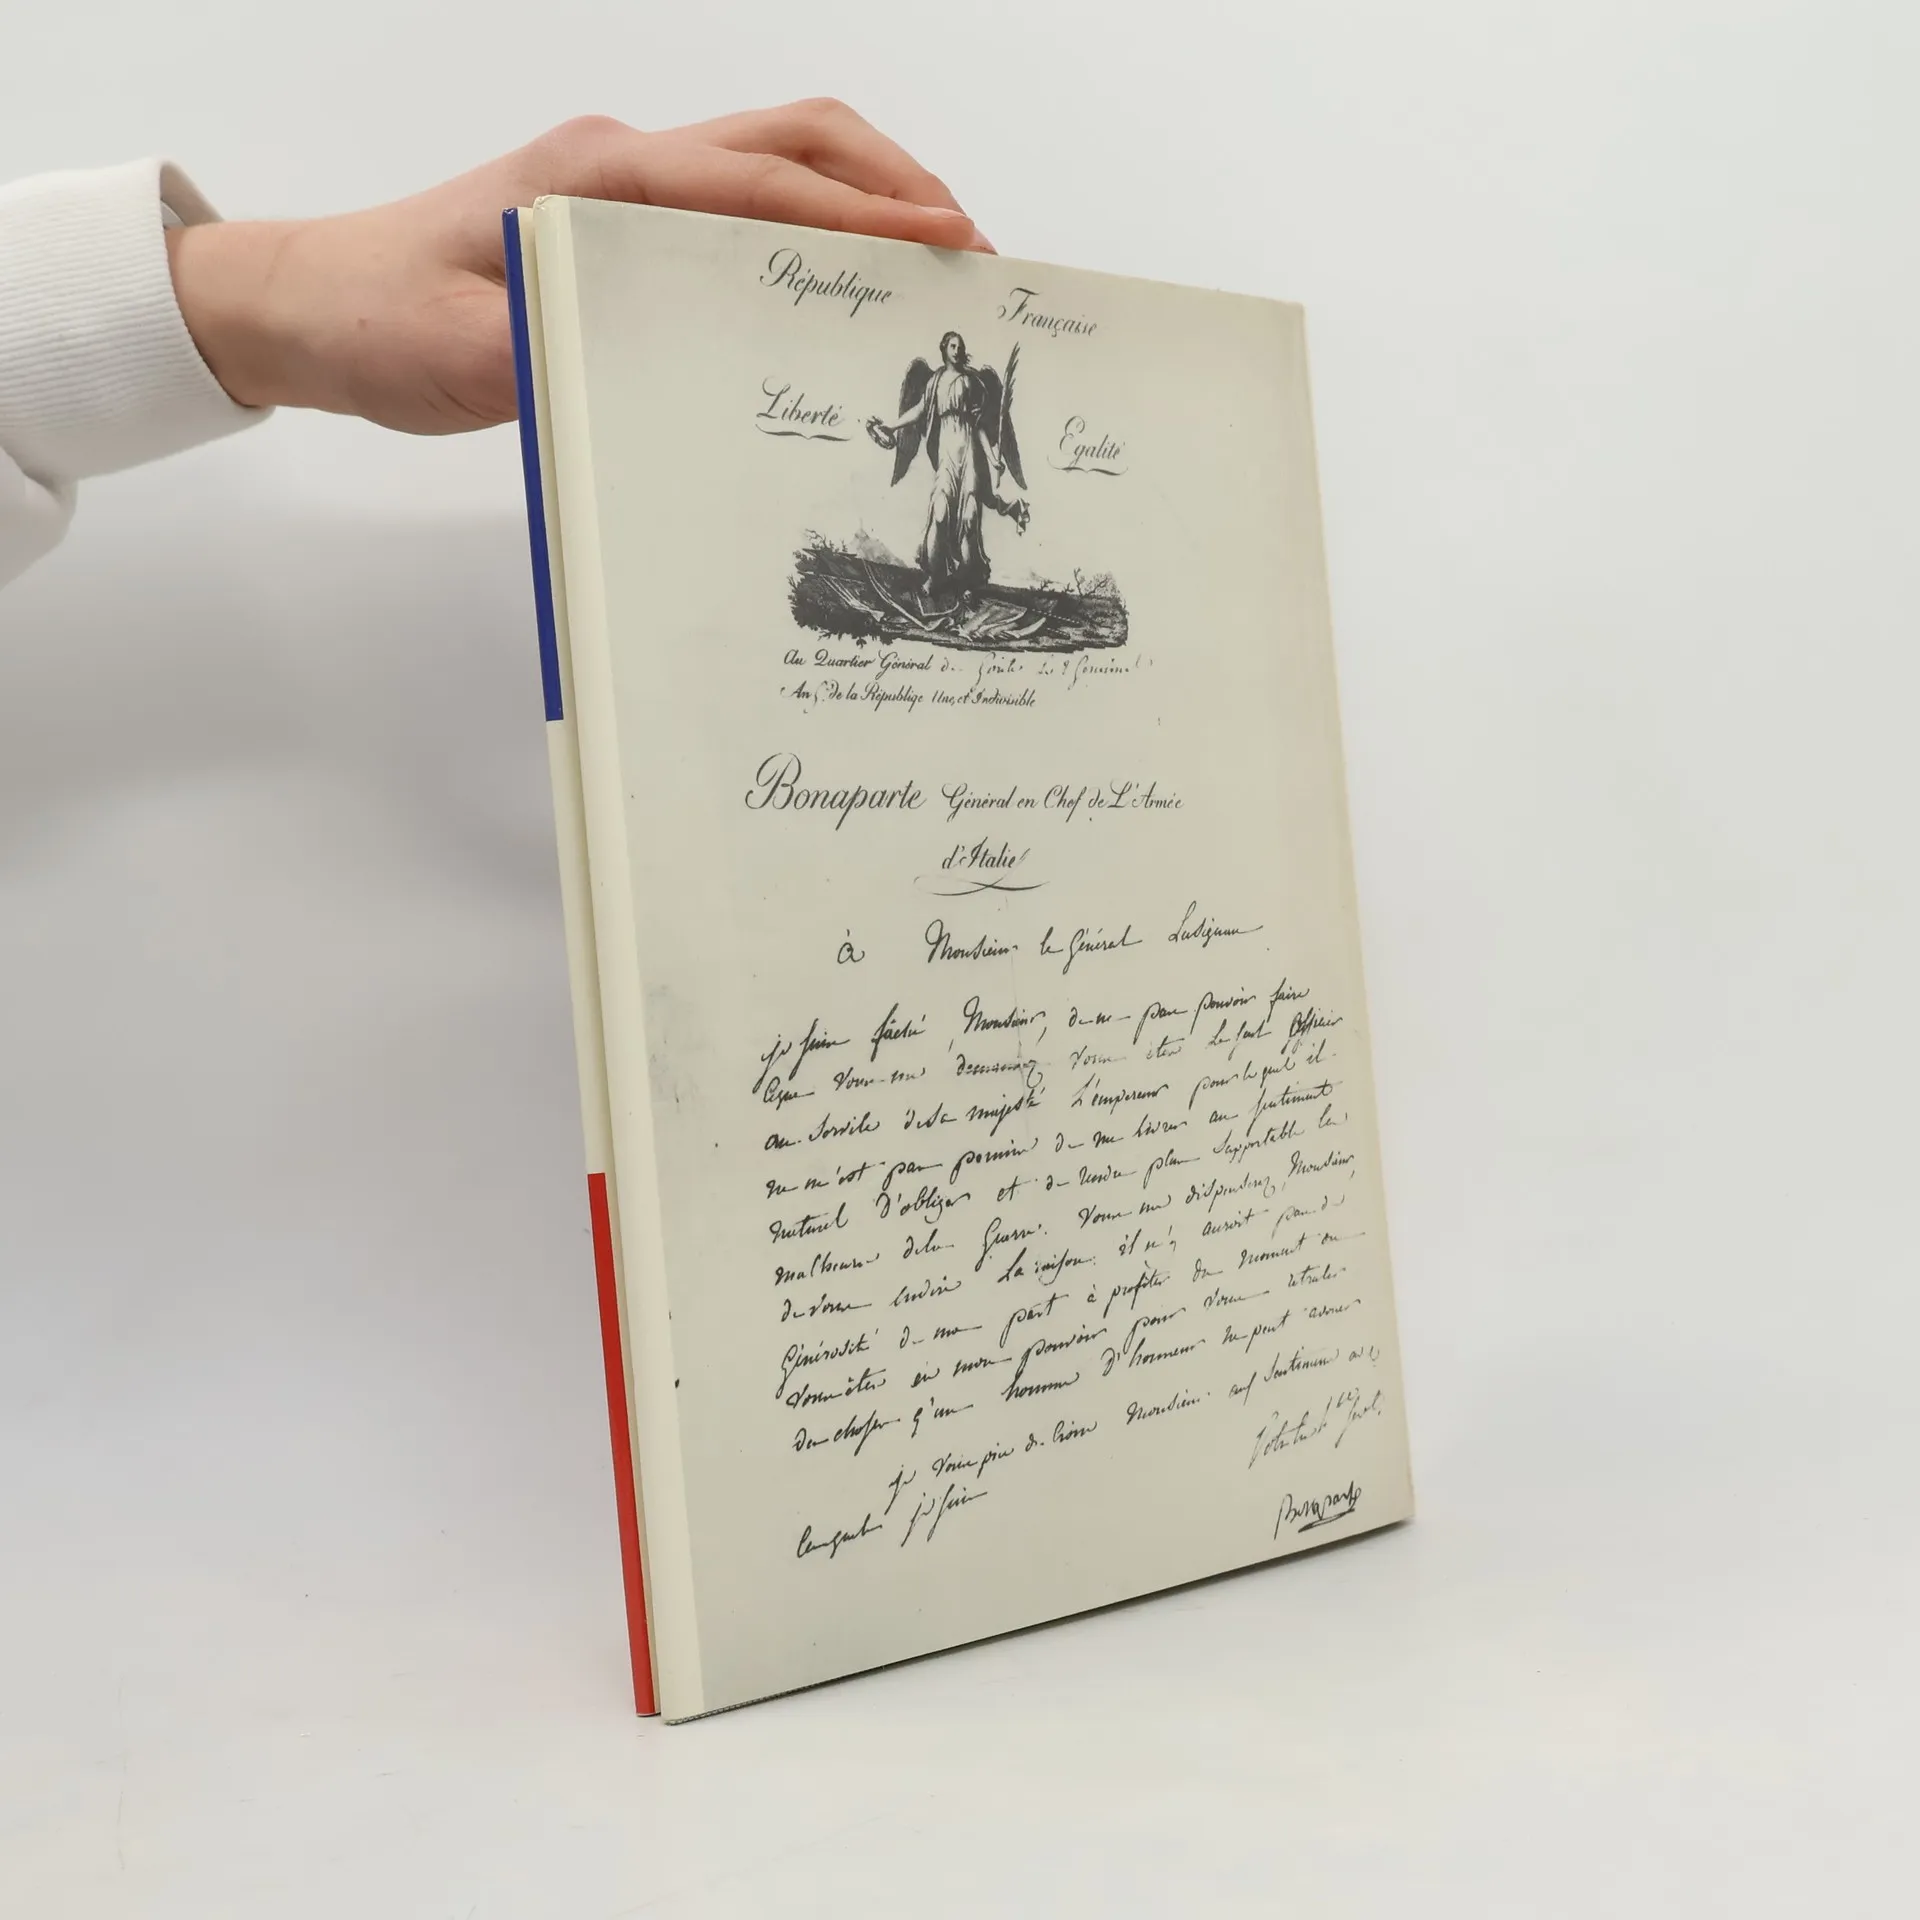 République Française
Liberté Egalité
Au Quartier Général de le
An 5. de la Républiqe Une, et Indivisible
Bonaparte Général en Chef de L'Armée
d'Italie
à Monsieur le Général Lusignan
je suis fâché, Monsieur, de ne pas pouvoir faire
ceque vous me demandez vous etes le seul officier
au service desa majesté L'empereur pour lequel il
ne m'est pas permis de me livrer au sentiment
naturel d'obliger et de rendre plus supportable les
malheurs dela guerre. vous me dispenserez, Monsieur,
de vous endire la raison. il n'y auroit pas de
générosité de ma part à profiter du moment ou
vous êtes en mon pouvoir pour vous
des choses q'un homme d'honneur ne peut avouer
je vous prie de croire Monsieur aux sentimens avec
lesquels je suis
Bonaparte